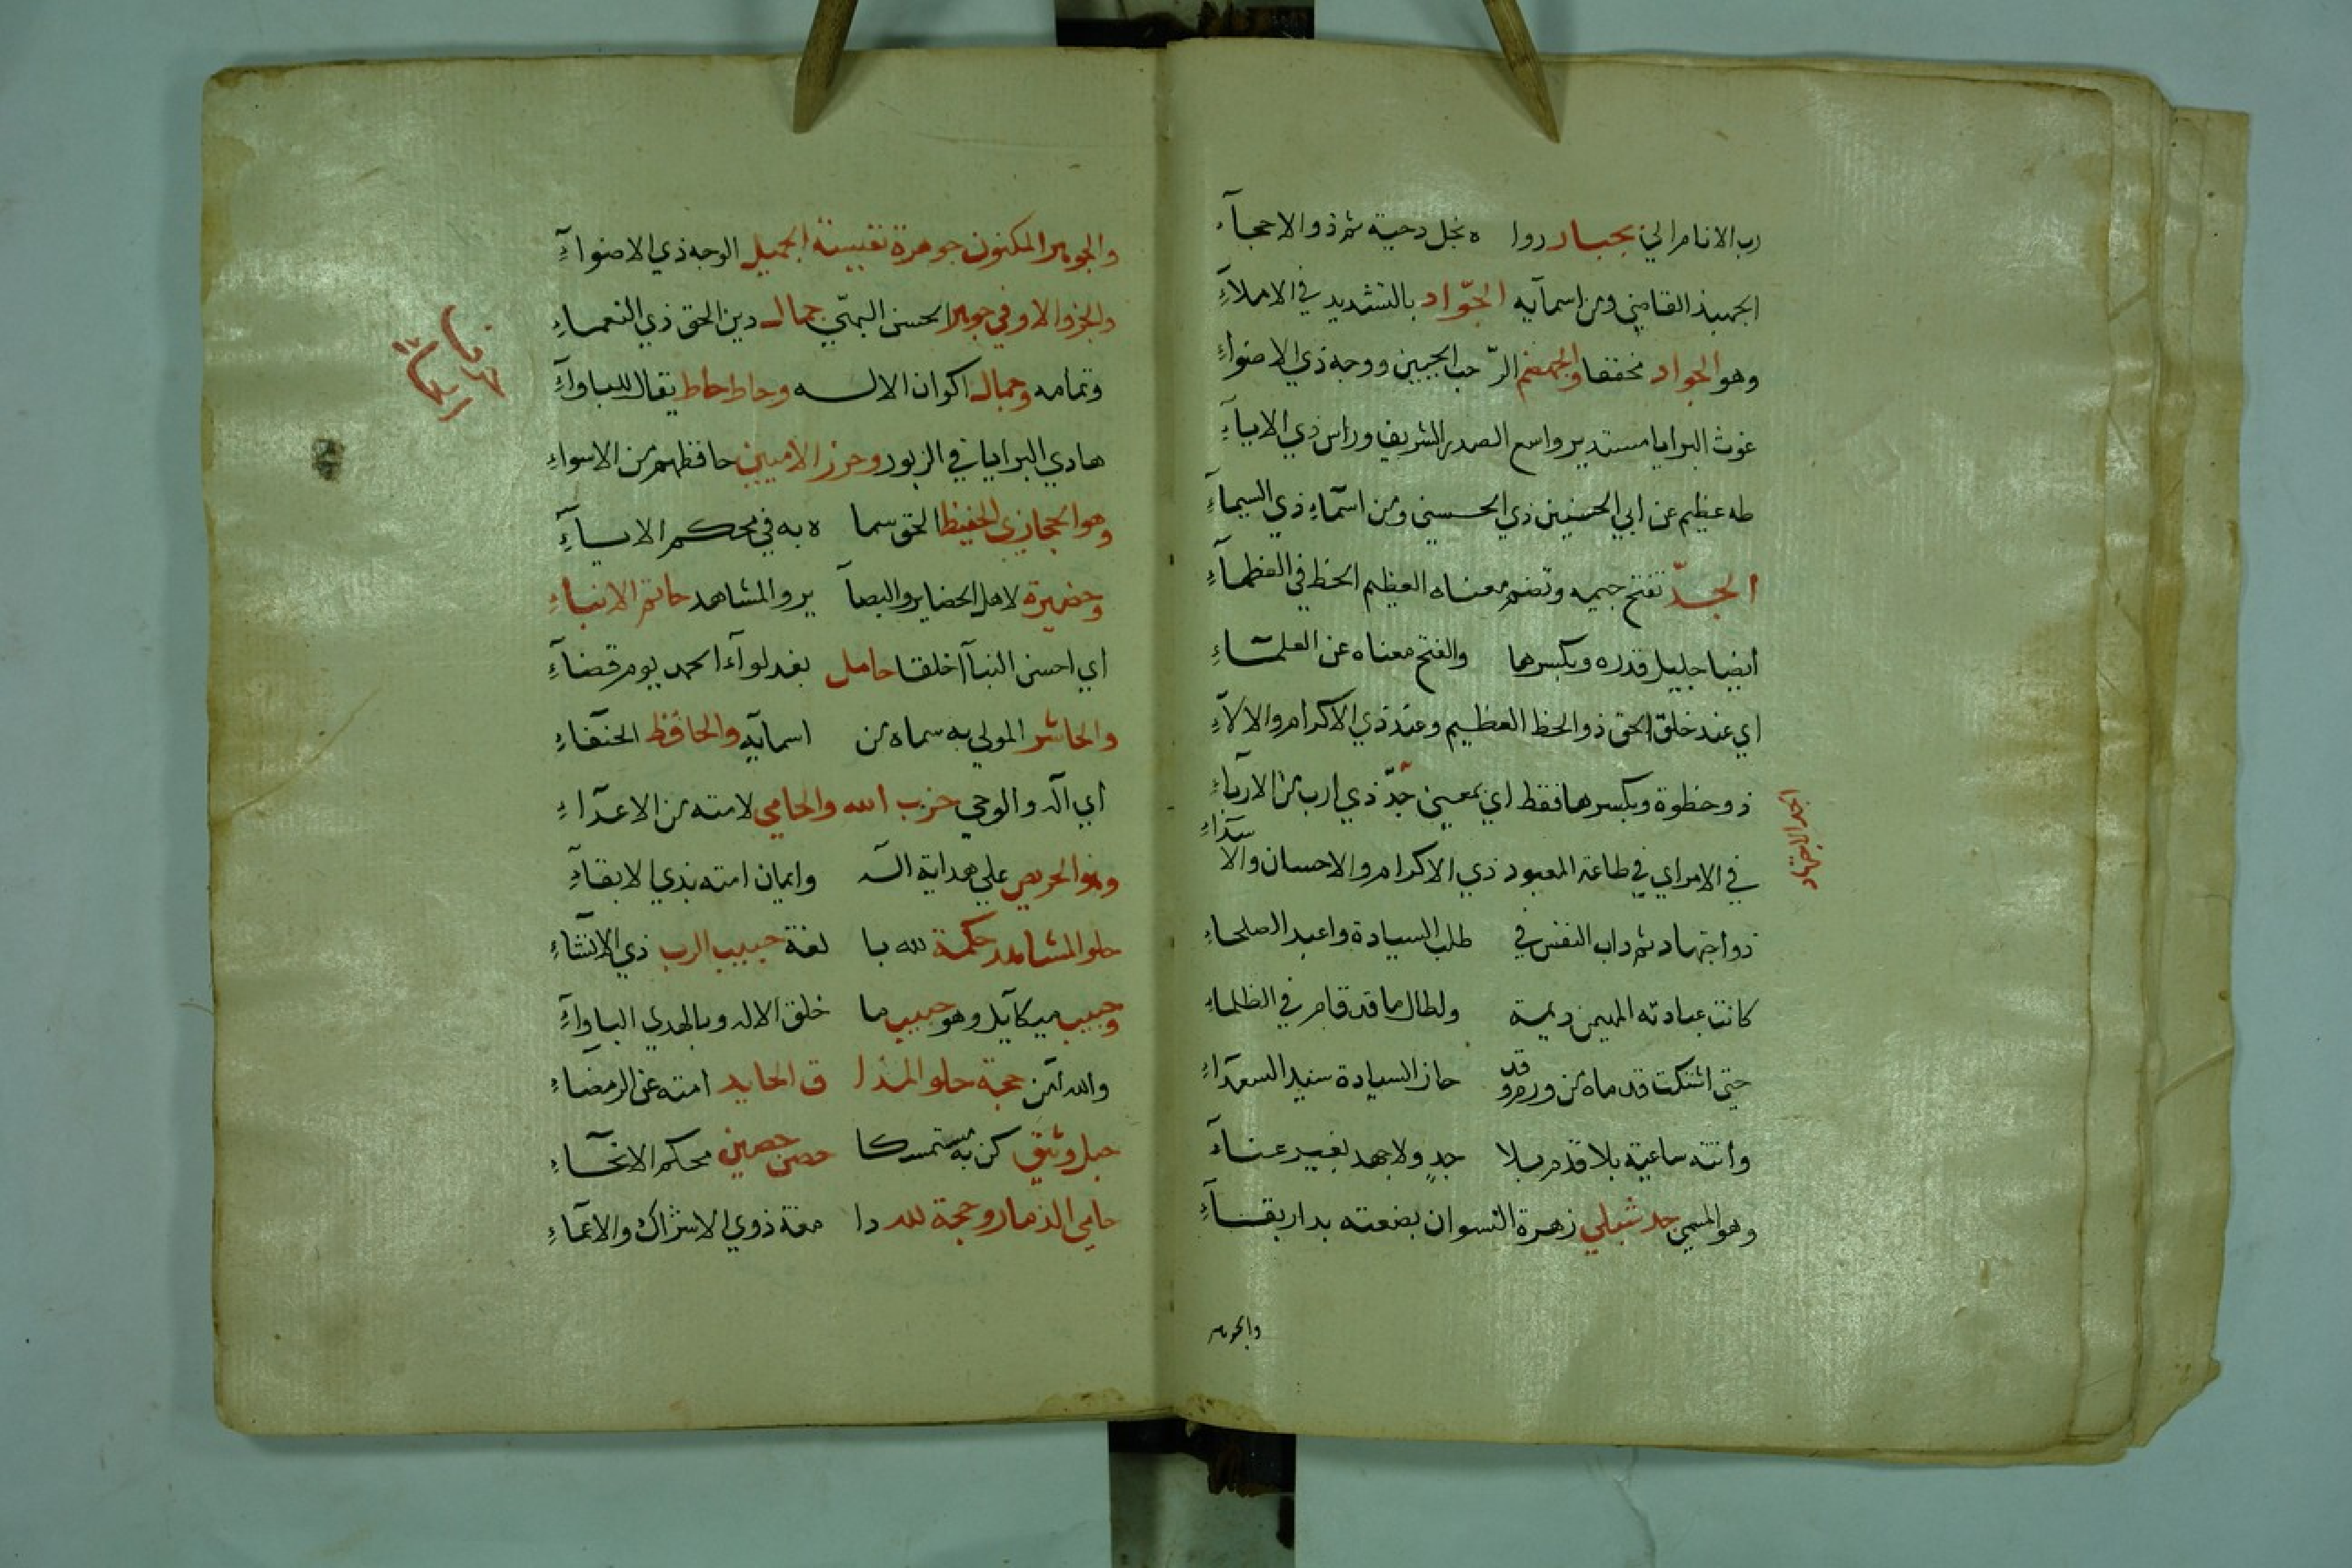 رب الانام الي بجبار روا ه نجل دحية ثم ذو الاحجاء
الجهبذ القاضي ومن اسمآيه الجوّاد بالتشديد في الاملاء
وهو الجواد مخففا والجهضم الرّحب الجبين ووجه ذي الاضواء
غوث البرايا مستدير واسع الصدر الشريف وراس ذي الابياء
طه عظيم عن ابي الحسنين ذي الحسني ومن اسمآء ذي السيماء
الجدّ تفتح جيمه وتضم معناه العظيم الحظ في العظماء
ايضا جليل قدره وبكسرها والفتح معناه عن العلماء
اي عند خلق الحق ذو الحظ العظيم وعند ذي الاكرام والالآء
ذو حظوة وبكسرها فقط اي بمعني جدّ ذي ارب من الارباء
في الامر اي في طاعة المعبود ذي الاكرام والاحسان والا سداء
ذو اجتهاد ثم داب النفس في طلب السيادة واعبد الصلحاء
كانت عبادته المهيمن ديمة ولطال ما قد قام في الظلماء
حتي اشتكت قدماه من ورم وقد حاز السيادة سيد السعداء
وانته ساعية بلا قدم بلا جدٍ ولا جهد بغير عناء
وهو المسمي جد شبلي زهرة النسوان بضعته بدار بقاء
والجوهر
والجوهر المكنون جوهرة نفيسة الجميل الوجه ذي الاضواء
والجزء الاوفي جوهر الحسن البهيّ جمال دين الحق ذي النعماء
وتمامه وجمال اكوان الاله وحاط حاط يقال للباواء
هادي البرايا في الزبور وحرز الاميين حافظهم من الاسواء
وهو الحجازي الحفيظ الحق سما ه به في محكم الانباء
وحضيرة لاهل الحضاير والبصآ ير والمشاهد حاتم الانبياء
اي احسن النبآا خلقا حامل بغد لوآء الحمد يوم قضاء
والحاشر المولي به سماه من اسمآيه والحافظ الحنفاء
اي اله والوحي حزب الله والحامي لامته من الاعداء
وهو الحريص علي هداية اله وايمان امته بذي الابقاء
حلو المشاهد حكمة لله با لغة حبيب الرب ذي الانشاء
وحبيب ميكآيل وهو حبيب ما خلق الاله وبالهدي الباواء
والله من حجة حلو المذا ق الحايد امته عن الرمضاء
حبل وثيق كن به مستمسكا حصن حصين محكم الانحاء
حامي الذمار وحجة لله دا مغة ذوي الاشراك والاعماء